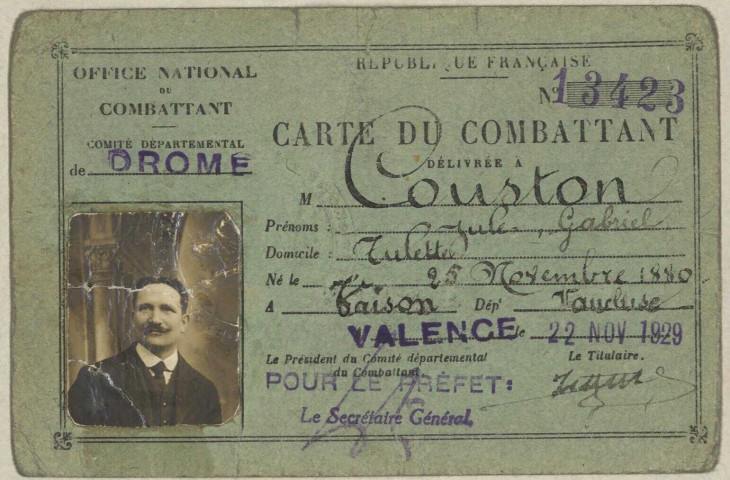 OFFICE NATIONAL
DU
COMBATTANT
COMITÉ DÉPARTEMENTAL
de DROME
RÉPUBLIQUE FRANÇAISE
N° 13423
CARTE DU COMBATTANT
DÉLIVRÉE A
M Couston
Prénoms : Jules, Gabriel
Domicile : Tulette
Né le 25 Novembre 1880
A Vaison Dépt Vaucluse
VALENCE le 22 NOV 1929
Le Président du Comité départemental
du Combattant
Le Titulaire.
POUR LE PRÉFET:
Le Secrétaire Général,